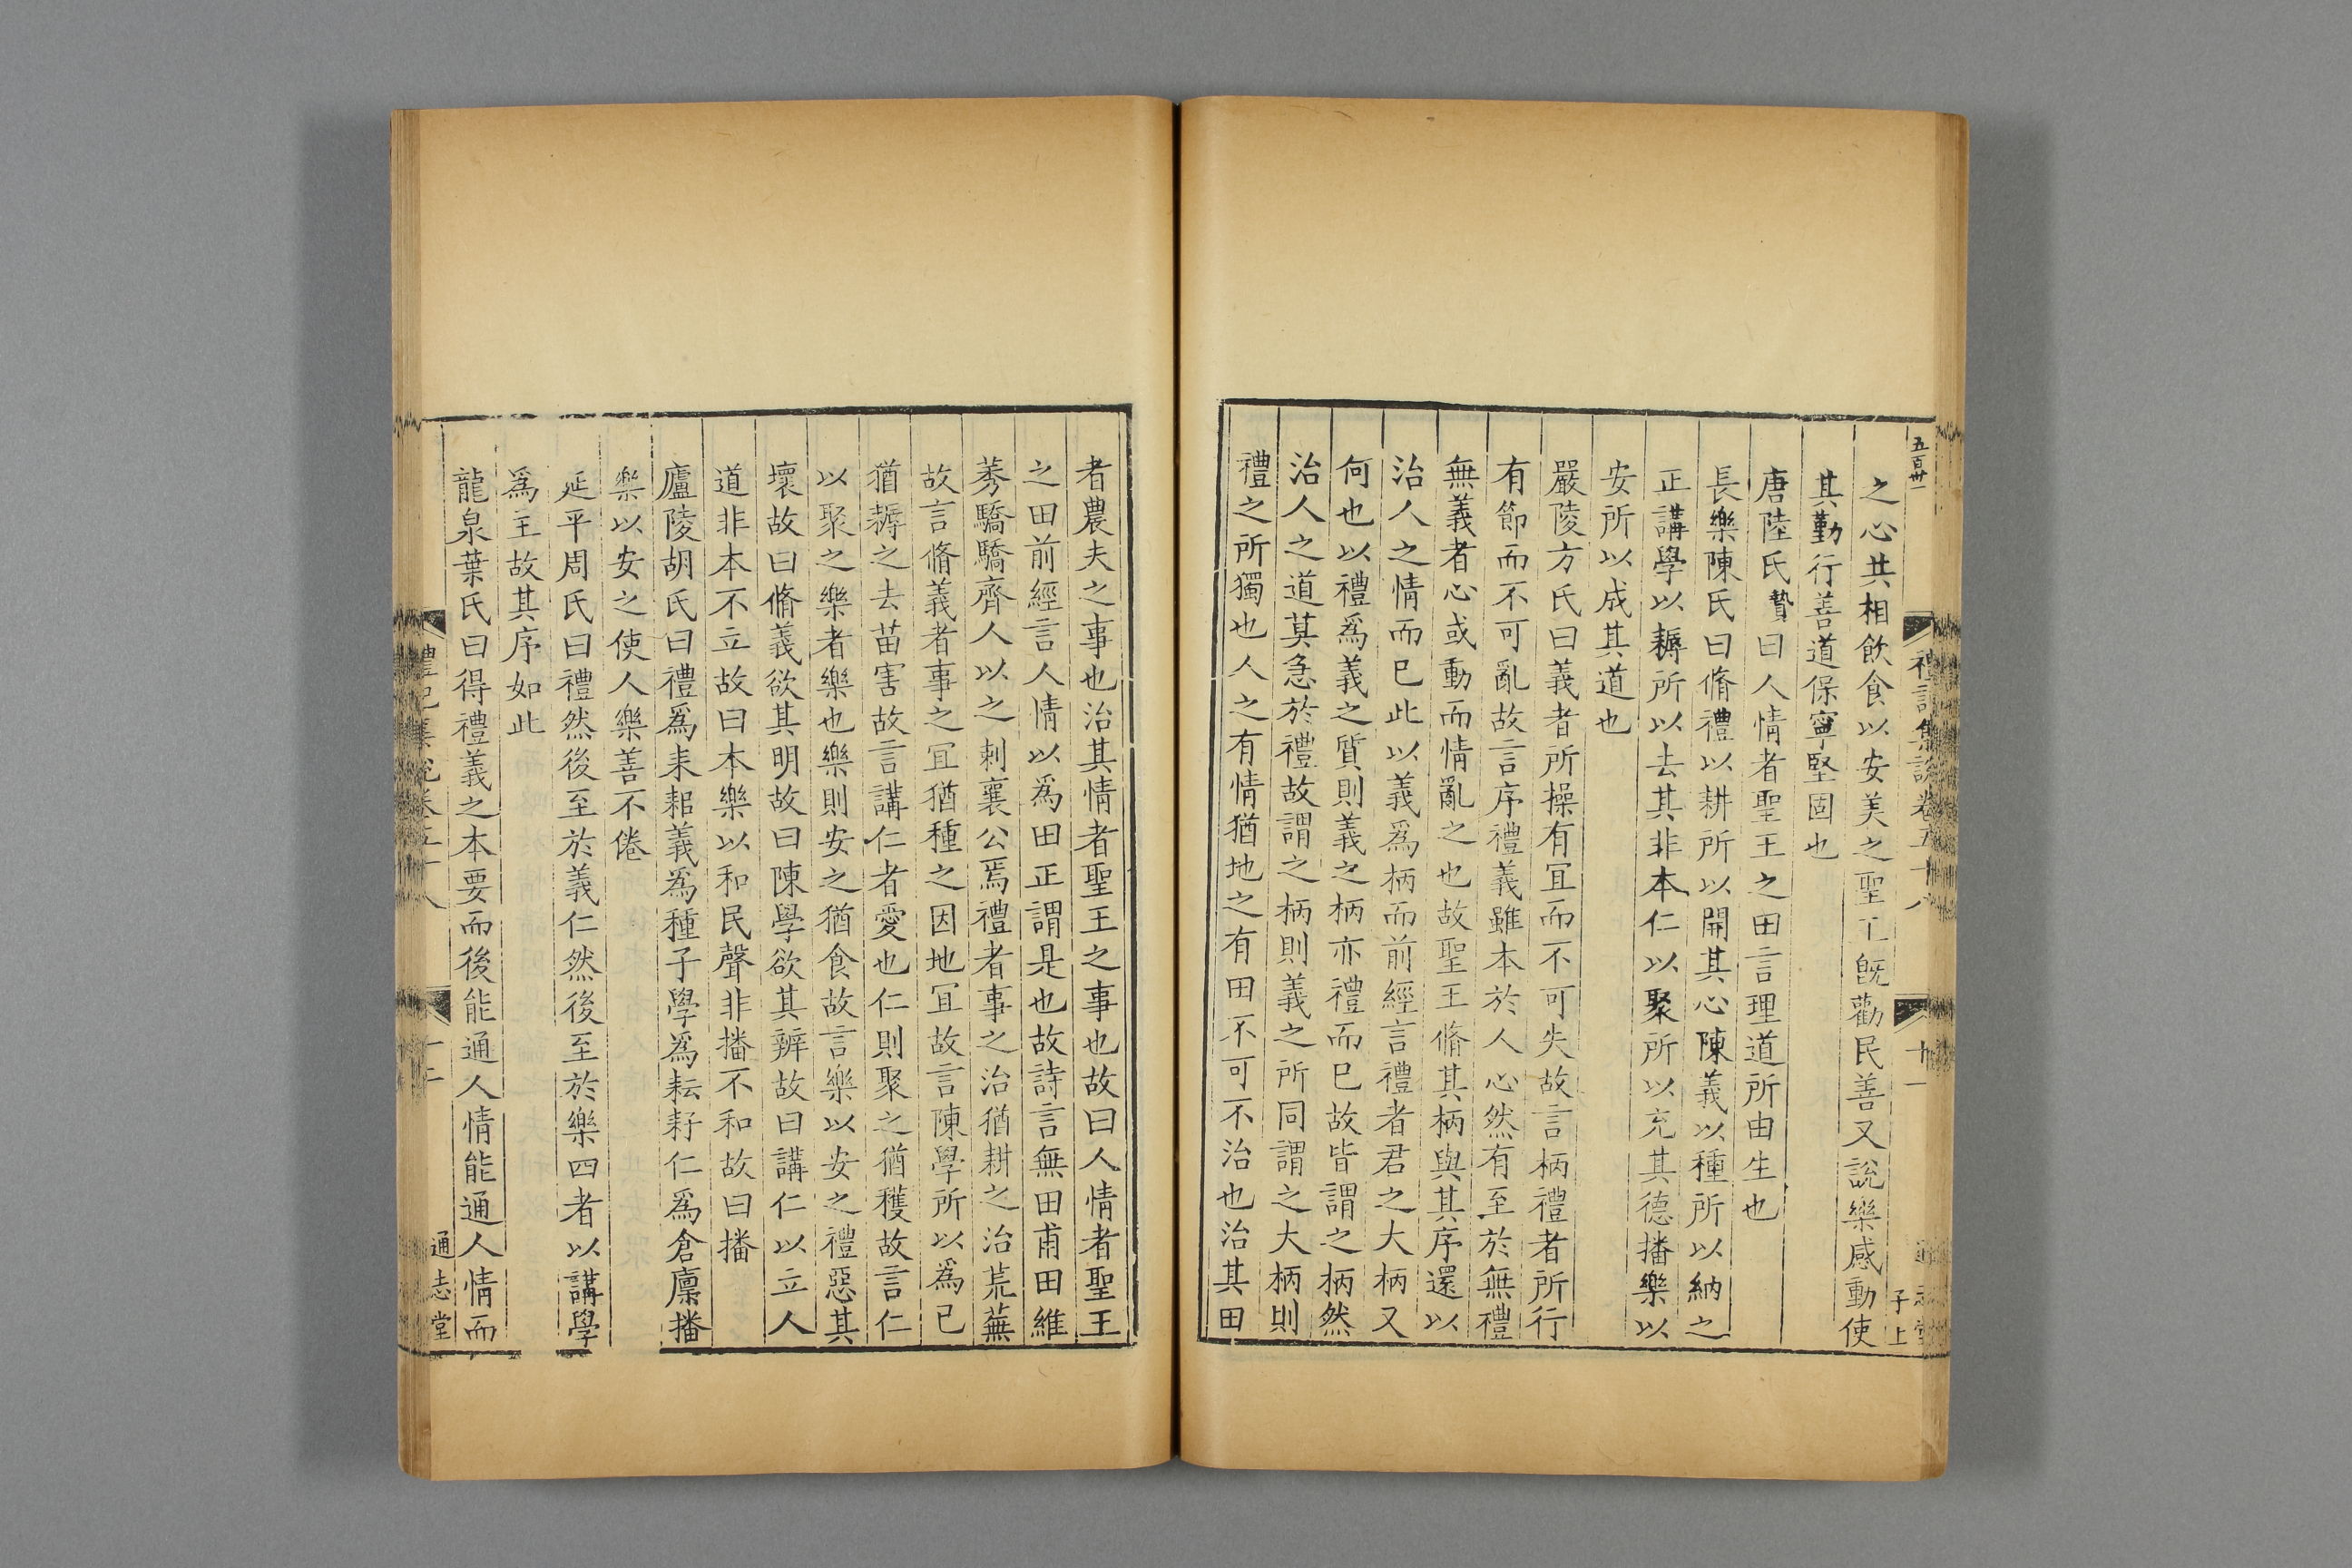 五百卅一
禮記集說卷五十八
十一
子上
之心共相飲食以安美之聖王旣勸民善又說樂感動使
其勤行善道保寧堅固也
唐陸氏贄曰人情者聖王之田言理道所由生也
長樂陳氏曰脩禮以耕所以開其心陳義以種所以納之
正講學以耨所以去其非本仁以聚所以充其德播樂以
安所以成其道也
嚴陵方氏曰義者所操有冝而不可失故言柄禮者所行
有節而不可亂故言序禮義雖本於人心然有至於無禮
無義者心或動而情亂之也故聖王脩其柄與其序還以
治人之情而已此以義爲柄而前經言禮者君之大柄又
何也以禮爲義之質則義之柄亦禮而巳故皆謂之柄然
治人之道莫急於禮故謂之柄則義之所同謂之大柄則
禮之所獨也人之有情猶地之有田不可不治也治其田
者農夫之事也治其情者聖王之事也故曰人情者聖王
之田前經言人情以爲田正謂是也故詩言無田甫田維
莠驕驕齊人以之刺襄公焉禮者事之治猶耕之治荒蕪
故言脩義者事之冝猶種之因地冝故言陳學所以爲已
猶耨之去苗害故言講仁者愛也仁則聚之猶穫故言仁
以聚之樂者樂也樂則安之猶食故言樂以安之禮惡其
壞故曰脩義欲其明故曰陳學欲其辨故曰講仁以立人
道非本不立故曰本樂以和民聲非播不和故曰播
廬陵胡氏曰禮爲耒耜義爲種子學爲耘耔仁爲倉廩播
樂以安之使人樂善不倦
延平周氏曰禮然後至於義仁然後至於樂四者以講學
爲主故其序如此
龍泉葉氏曰得禮義之本要而後能通人情能通人情而
禮記集說卷五十八
十二
通志堂